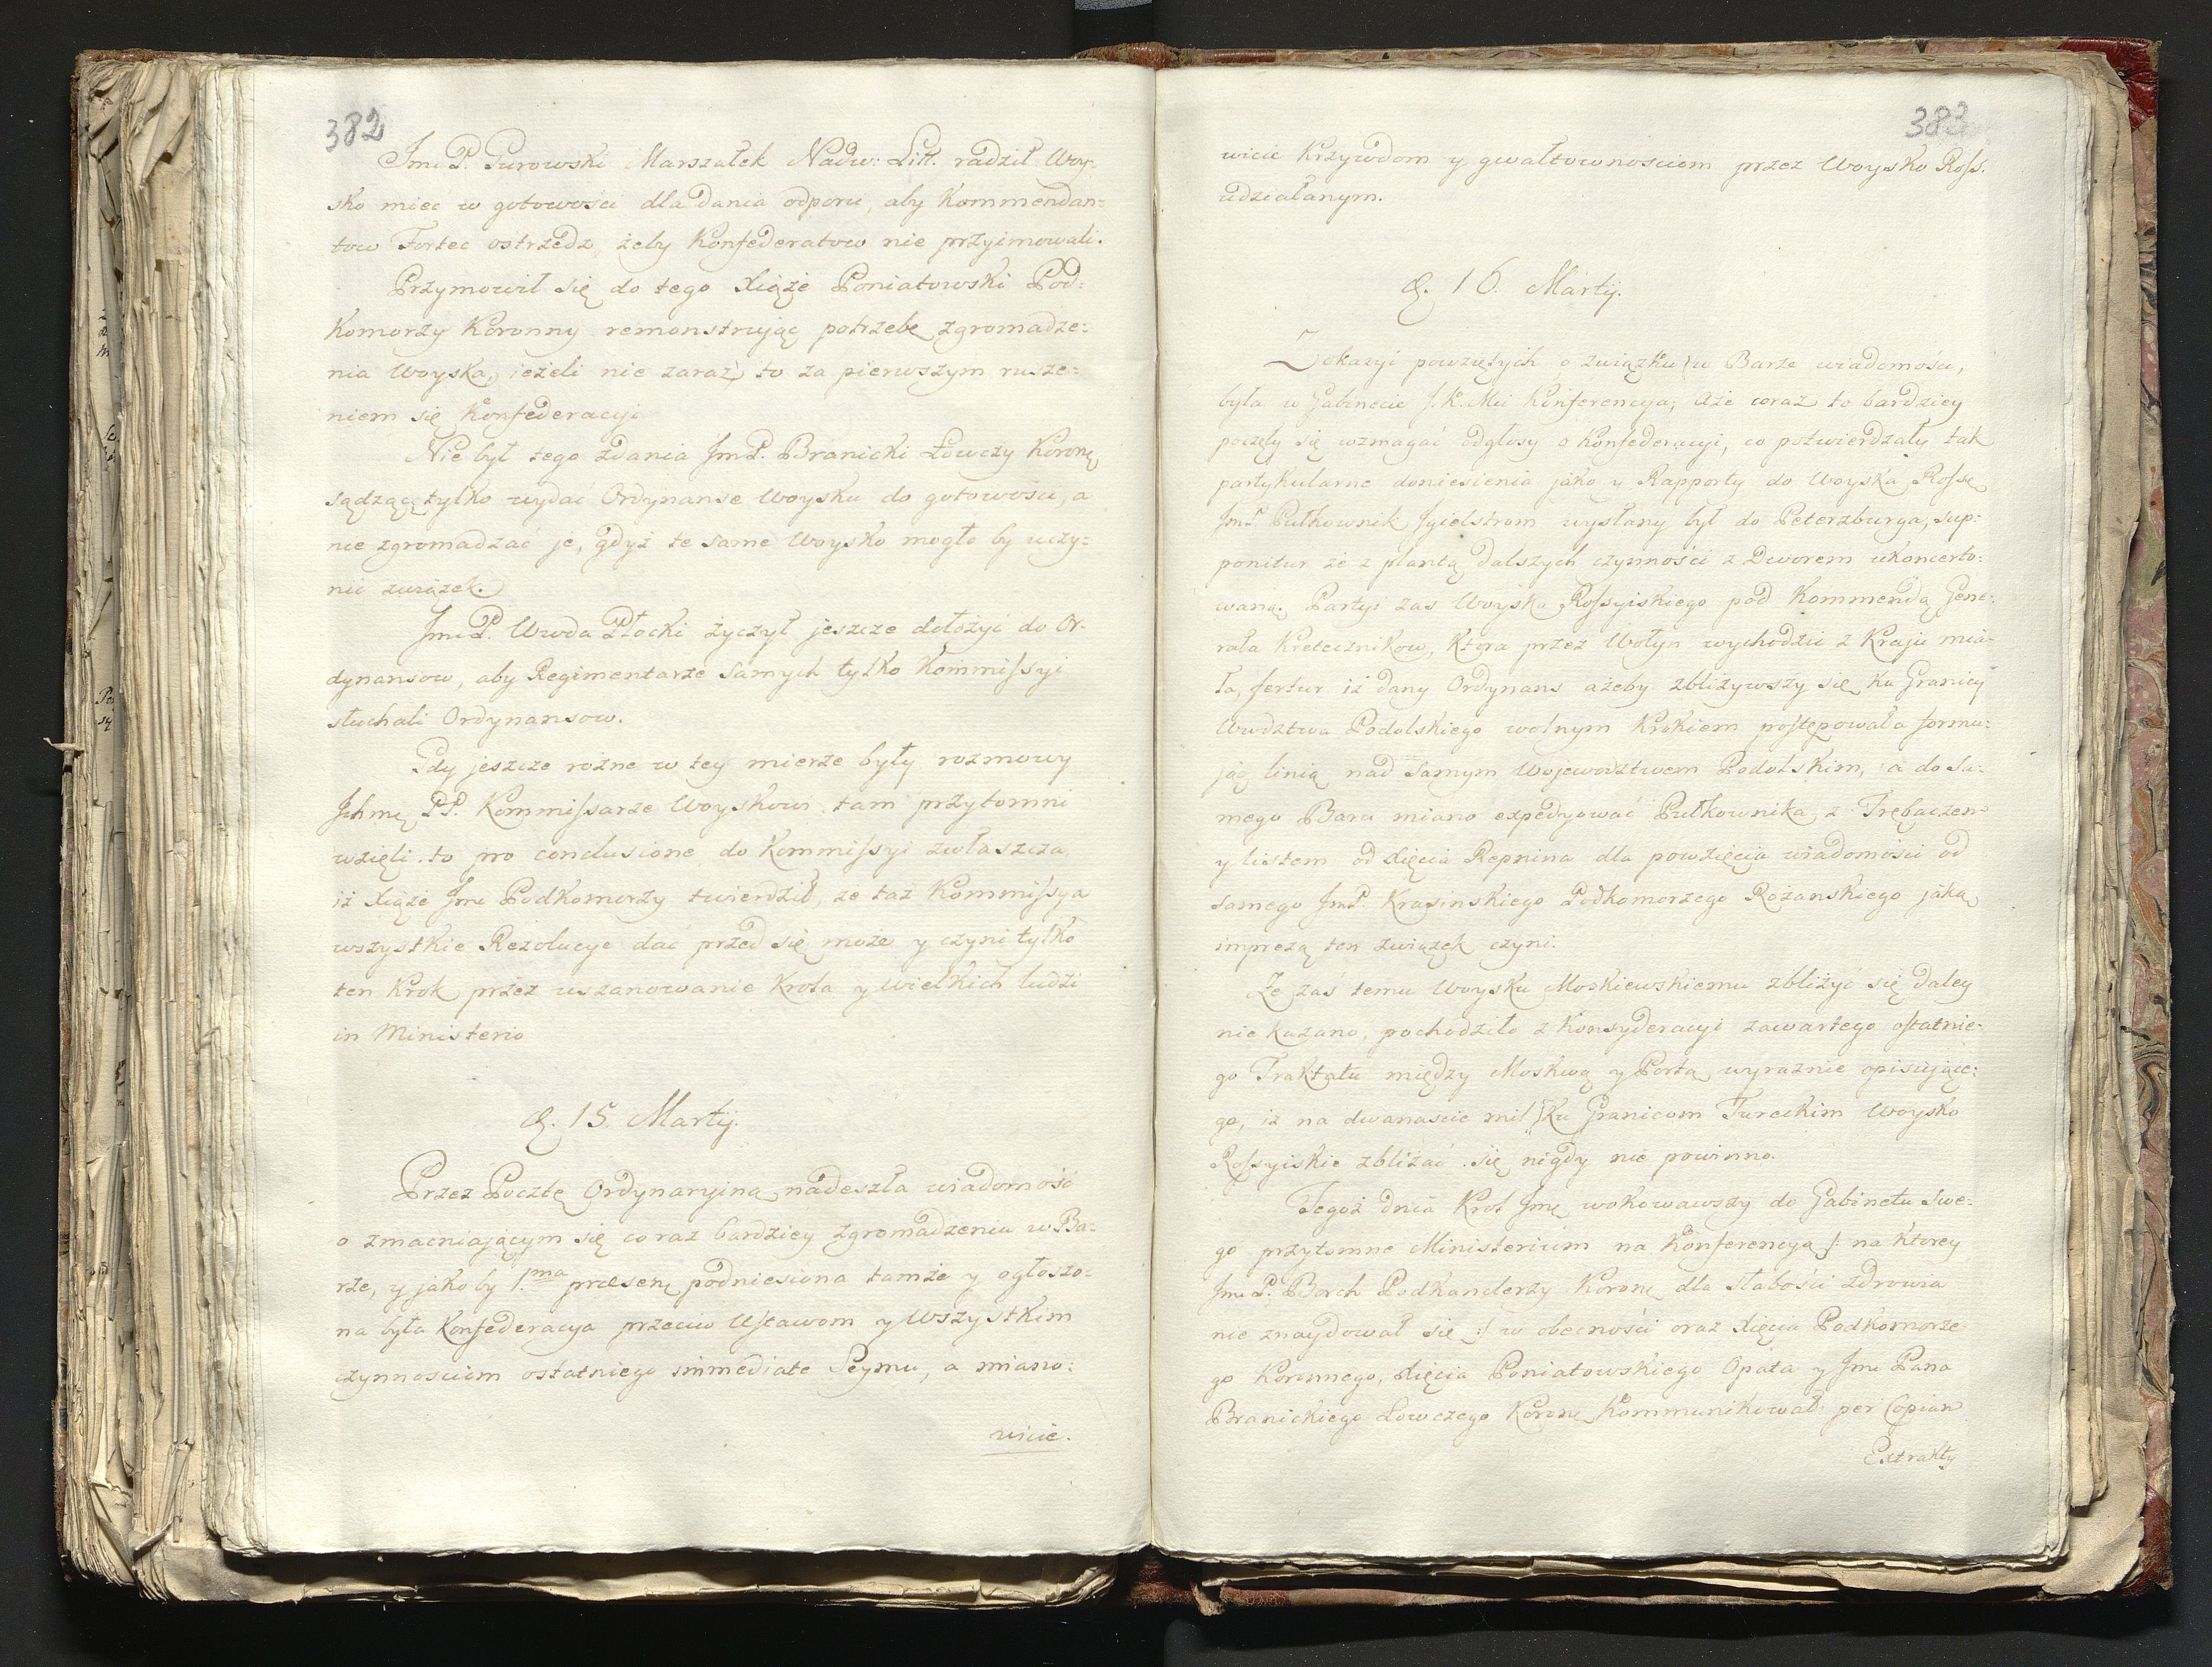 382
Jmć P. Gurowski Marszałek Nadw: Litt. radził Woy-
sko mieć w gotowości dla dania odporu, aby Kommendan=
tow Fortec ostrzedz, żeby Konfederatow nie przyimowali.
Przymowił się do tego Xiąże Poniatowski Pod=
Komorzy Koronny remonstruiąc potrzebę zgromadze=
nia Woyska, ieżeli nie zaraz, to za pierwszym rusze=
niem się Konfederacyi
Nie był tego zdania JmP. Branicki Łowczy Koronę
sądząc tylko wydać Ordynanse Woysku do gotowości, a
nie zgromadzać je, gdyż te same Woysko mogło by uczy=
nić związek.
Jmć P. Wwda Płocki życzył jeszcze dołożyć do Or-
dynansow, aby Regimentarze samych tylko Kommissyi
słuchali Ordynansow.
Gdy jeszcze rożne w tey mierze były rozmowy
Ichmę PP. Kommissarze Woyskowi tam przytomni
wzięli to pro conclusione do Kommissyi zwłaszcza
iż Xiąże Jmć Podkomorzy twierdził, że taż Kommissya
wszystkie Rezolucye dać przed się może y czyni tylko
ten Krok przez uszanowanie Krola y wielkich ludzi
in Ministerio
d. 15. Martij.
Przez Pocztę Ordynaryiną nadeszła wiadomość
o zmacniaiącym się coraz bardziey zgromadzeniu w Ba=
rze, y jakoby 1.ma præsenę podniesiona tamże y ogłoszo=
na była Konfederacya przeciw Ustawom y Wszystkim
czynnosciom ostatniego immediate Seymu, a miano=
wicie.
383
wicie Krzywdom y gwałtownosciom przez Woysko Ross.
udziałanym.
d. 16. Martij.
Z okazyi powziętych o związku w Barze wiadomości,
była w Gabinecie J.K.Mci Konferencya; Aże coraz to bardziey
poczęły się wzmagać odgłosy o Konfederacyi, co potwierdzały tak
partykularne doniesienia jako y Rapporty do Woyska Rossę
JmP. Pułkownik Jgielstrom wysłany był do Peterzburga, sup=
ponitur że z plantą dalszych czynności z Dworem ukoncerto=
waną. Partyi zas Woyska Rossyiskiego pod Kommendą Gene=
rała Kreteczników, Ktora przez Wołyn wychodzić z Kraju mia-
ła, fertur iż dany Ordynans ażeby zbliżywszy się ku Granicy
Wwdztwa Podolskiego wolnym Krokiem postępowała formu=
jąc linią nad samym Wojewodztwem Podolskim, a do sa=
mego Baru miano expedyować Pułkownika z Trębaczem
y listem od Xięcia Repnina dla powzięcia wiadomości od
samego JmP. Krasinskiego Podkomorzego Rożanskiego jaką
imprezą ten związek czyni.
Że zaś temu Woysku Moskiewskiemu zbliżyć się daley
nie kazano, pochodziło z Konsyderacyi zawartego ostatnie=
go Traktatu między Moskwą y Portą wyraznie opisuiące=
go, iż na dwanascie mil ku Granicom Tureckim Woysko
Rossyiskie zbliżać się nigdy nie powinno.
Tegoż dnia Krol Jmę wokowawszy do Gabinetu swe=
go przytomne Ministerium na Konferencyą /: na ktorey
Jmć P. Borch Podkanclerzy Koronę dla słabości zdrowia
nie znaydował się :/ w obecności oraz Xięcia Podkomorze-
go Koronnego, Xięcia Poniatowskiego Opata y Jmć Pana
Branickiego Łowczego Koronę Kommunikował per Copiam
Extrakty